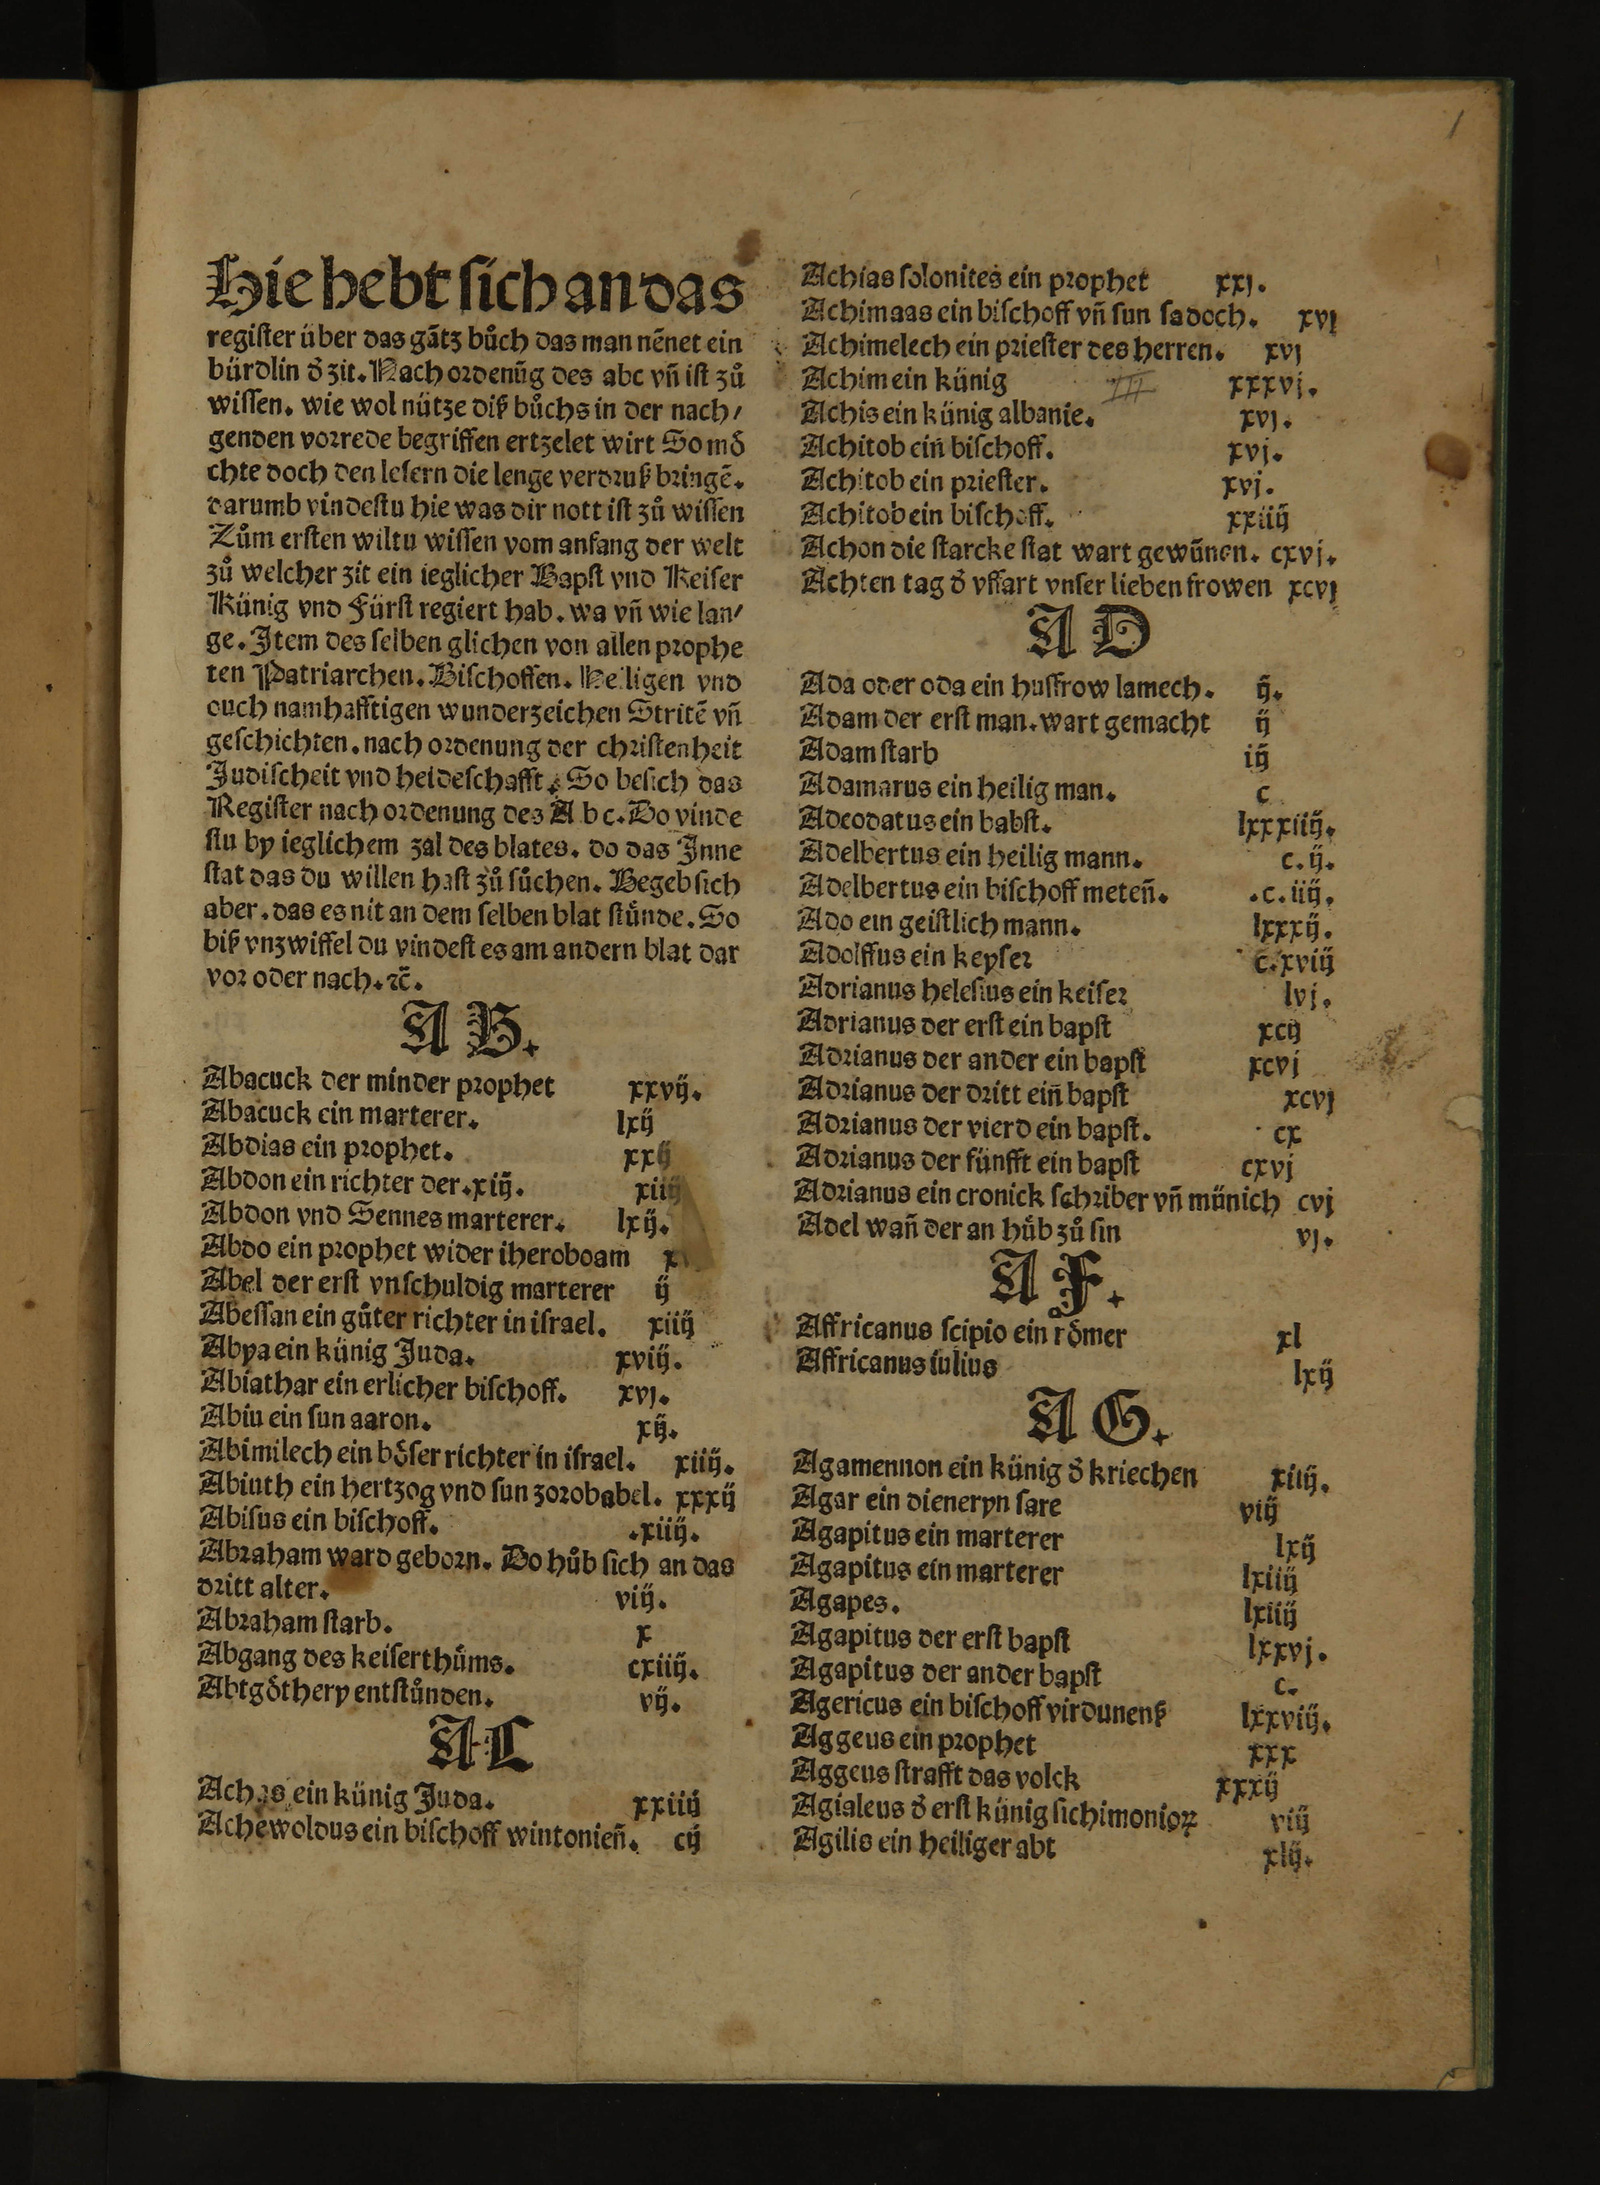 Hie hebt ſich an das
regiſter über das gātz bůch das man nēnet ein
bürdlin d̄ zit. Nach ordenūg des abc vn̄ iſt zů
wiſſen. wie wol nütze diß bůchs in der nach/
genden vorrede begriffen ertzelet wirt So mö
chte doch den leſern die lenge verdruß bringē.
darumb vindeſtu hie was dir nott iſt zů wiſſen
Zům erſten wiltu wiſſen vom anfang der welt
zů welcher zit ein ieglicher Bapſt vnd Keiſer
Künig vnd Fürſt regiert hab. wa vn̄ wie lan/
ge. Item des ſelben glichen von allen prophe
ten Patriarchen. Biſchoffen. Heiligen vnd
ouch namhafftigen wunderzeichen Stritē vn̄
geſchichten. nach ordenung der chriſtenheit
Judiſcheit vnd heideſchafft. So beſich das
Regiſter nach ordenung des A b c. Do vinde
ſtu by ieglichem zal des blates. do das Inne
ſtat das du willen haſt zů ſůchen. Begeb ſich
aber. das es nit an dem ſelben blat ſtůnde. So
biß vnzwiffel du vindeſt es am andern blat dar
vor oder nach. ⁊c̄.
A B.
Abacuck der minder prophet xxvij.
Abacuck ein marterer. lxij
Abdias ein prophet. xxij
Abdon ein richter der .xiij. xiiij
Abdon vnd Sennes marterer. lxij.
Abdo ein prophet wider iheroboam
Abel der erſt vnſchuldig marterer ij
Abeſſan ein gůter richter in iſrael. xiiij
Abya ein künig Juda. xviij.
Abiathar ein erlicher biſchoff. xvj.
Abiu ein ſun aaron. xij.
Abimilech ein böſer richter in iſrael. xiiij.
Abiuth ein hertzog vnd ſun zorobabel. xxxij
Abiſus ein biſchoff. .xiiij.
Abraham ward geborn. Do hůb ſich an das
dritt alter. viij.
Abraham ſtarb. x
Abgang des keiſerthůms. cxiiij.
Abtgöthery entſtůnden. vij.
A C
Achas ein künig Juda. xxiiij
Achewoldus ein biſchoff wintonien̄. cij
Achias ſolonites ein prophet xxj.
Achimaas ein biſchoff vn̄ ſun ſadoch. xvj
Achimelech ein prieſter des herren. xvj
Achim ein künig xxxvj.
Achis ein künig albanie. xvj.
Achitob ein̄ biſchoff. xvj.
Achitob ein prieſter. xvj.
Achitob ein biſchoff. xxiiij
Achon die ſtarcke ſtat wart gewūnen. cxvj.
Achten tag d̄ vffart vnſer lieben frowen xcvj
A D
Ada oder oda ein huſfrow lamech. ij.
Adam der erſt man. wart gemacht ij
Adam ſtarb iij
Adamarus ein heilig man. c
Adeodatus ein babſt. lxxxiiij.
Adelbertus ein heilig mann. c.ij.
Adelbertus ein biſchoff meten̄. .c.iij.
Ado ein geiſtlich mann. lxxxij.
Adolffus ein keyſer c.xviij
Adrianus heleſius ein keiſer lvj.
Adrianus der erſt ein bapſt xcij
Adrianus der ander ein bapſt xcvj
Adrianus der dritt ein̄ bapſt xcvj
Adrianus der vierd ein bapſt. cx
Adrianus der fünfft ein bapſt cxvj
Adrianus ein cronick ſchriber vn̄ münich cvj
Adel wan̄ der an hůb zů ſin vj.
A F.
Affricanus ſcipio ein römer xl
Affricanus iulius lxij
A G.
Agamennon ein künig d̄ kriechen xiiij.
Agar ein dieneryn ſare viij
Agapitus ein marterer lxij
Agapitus ein marterer lxiiij
Agapes. lxiiij
Agapitus der erſt bapſt lxxvj.
Agapitus der ander bapſt c.
Agericus ein biſchoff virdunenß lxxviij.
Aggeus ein prophet xxx
Aggeus ſtrafft das volck xxxij
Agialeus d̄ erſt künig ſichimonioꝝ viij
Agilis ein heiliger abt xlij.